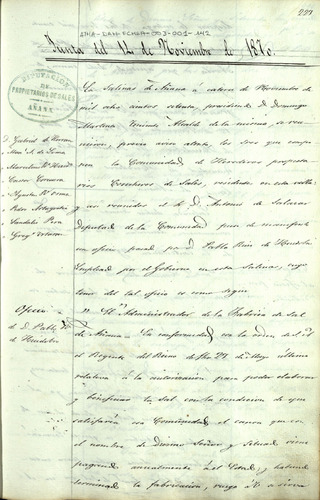 ATHA-DAH-ECHEA-003-001-142
222
Junta del 14 de Noviembre de 1870.
DIPUTACION
DE
PROPIETARIOS DE SALES
AÑANA
En Salinas de Añana a catorce de Noviembre de
mil ocho cientos setenta, presidiendo D. Domingo
Martinez Teniente Alcalde de la misma, se reu-
nieron, previo aviso ante diem, los Sres que compo-
nen la Comunidad de Herederos propieta-
rios Cosecheros de Sales, vecindada en esta villa
y asi reunidos el D. Antonio de Salazar
Diputado de la Comunidad puso de manifiesto
un oficio pasado por D. Pablo Ruiz de
Empleado por el Gobierno en estas Salinas, cuyo
tenor del tal oficio es como sigue
D. Gabriel de
Oficio
de D. Pablo R.
de
Administrador de la Fabrica de Sal
de Añana. En conformidad con la orden de S. A. el
el Regente del Reino de fha 27 de Mayo último
relativa á la autorizacion para poder elaborar
y beneficiar la sal con la condicion de que
satisfaria esa Comunidad el canon que con
el nombre de Diezmo Señoreo y viene
pagando anualmente al Estado; y habiendo
terminado la fabricacion, ruego á V. se sirva